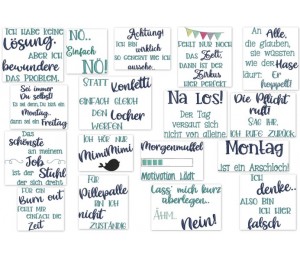 ICH HABE KEINE
Lösung,
ABER ICH
bewundere
DAS PROBLEM.
NÖ..
Einfach
NÖ!
Achtung!
ICH BIN
wirklich
SO GEMEIN WIE ICH
AUSSEHE.
FEHLT NUR NOCH
DAS Zelt,
DANN IST DER
Zirkus
HIER PERFEKT
An Alle,
DIE glauben,
SIE WÜSSTEN
WIE DER Hase
LÄUFT.
Er
hoppelt!
Sei immer
Du selbst!
Montag,
Freitag
STATT
Konfetti
EINFACH GLEICH
DEN Locher
WERFEN
Na los!
DER TAG
VERSAUT SICH
NICHT VON ALLEINE.
Die Pflicht
ruft
SAG IHR,
ICH RUFE ZURÜCK.
Das
schönste
an meinem
Job
ist der Stuhl
der sich dreht
ICH HÖR NUR
MimiMimi
Morgenmuffel
Motivation lädt
Montag
IST EIN ARSCHLOCH!
FÜR EIN
Burn out
FEHLT MIR
EINFACH DIE
Zeit
FÜR
Pillepalle
BIN ICH
nicht
ZUSTÄNDIG
Lass' mich kurz
überlegen...
ÄHM..
Nein!
ICH
denke..
ALSO BIN
ICH HIER
falsch